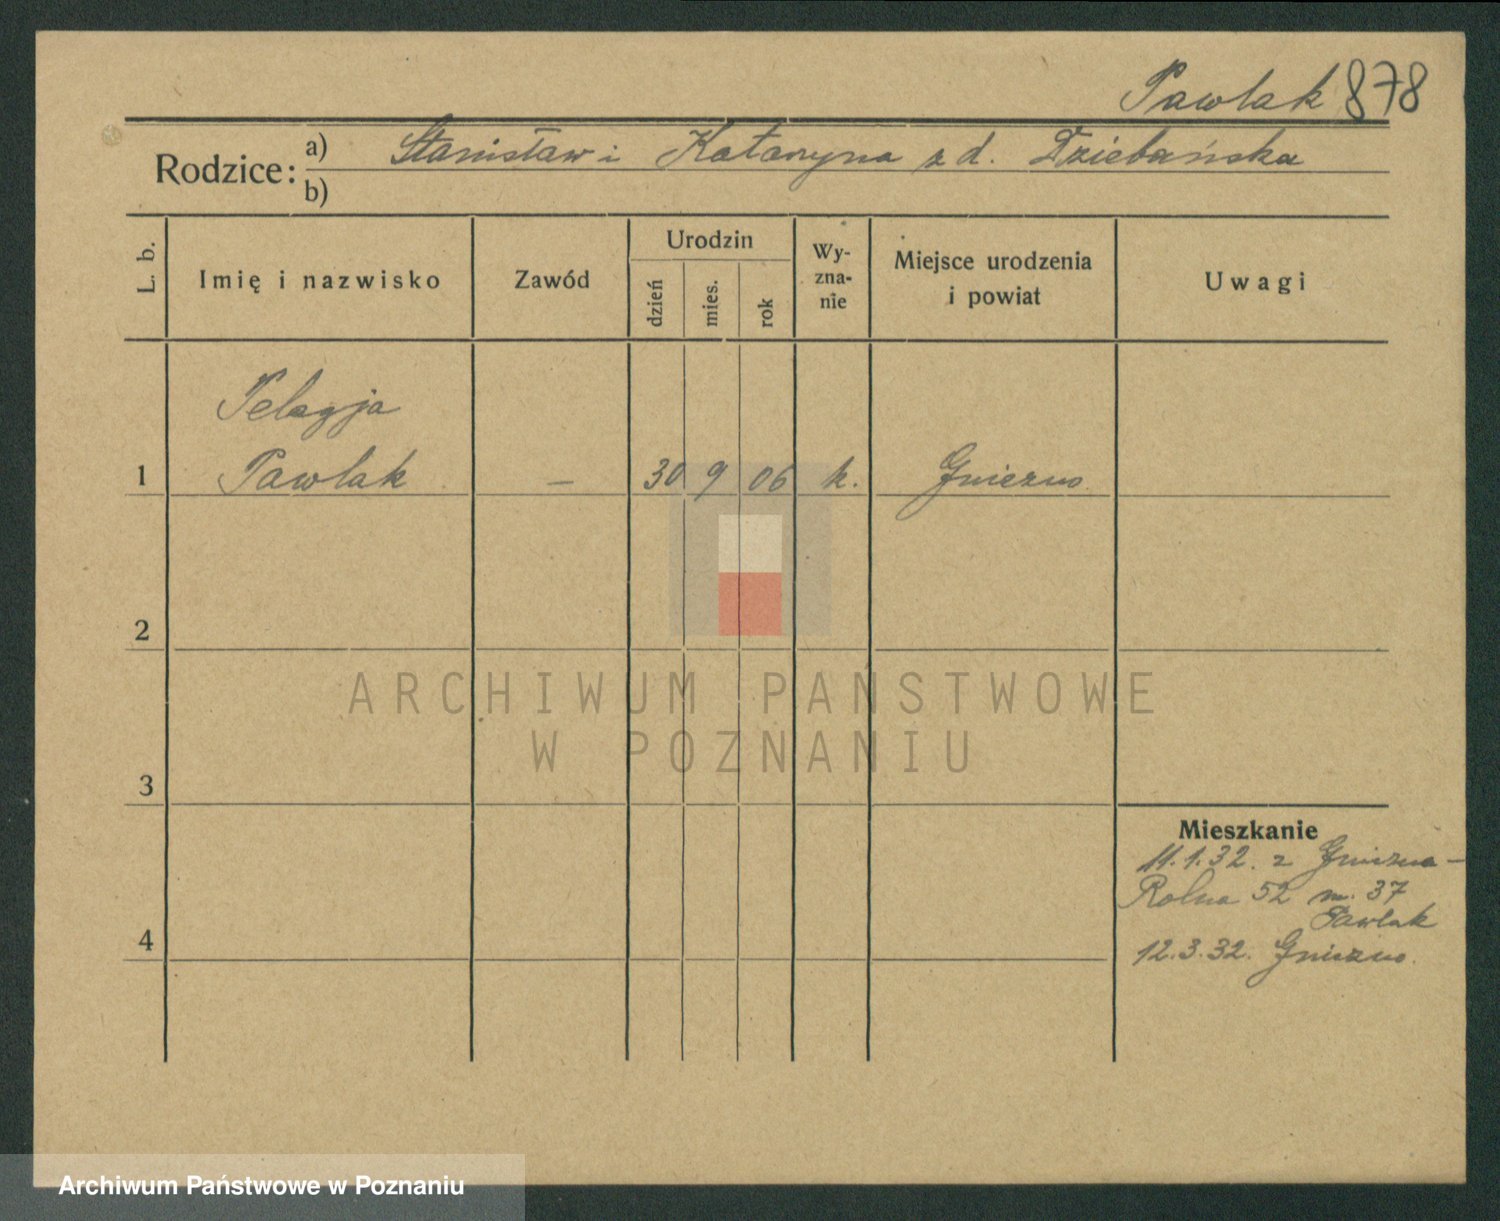 Pawlak 878
Rodzice: a) Stanisław i Katarzyna z d. Dziebańska
b)
L. b. Imię i nazwisko Zawód Urodzin dzień mies. rok Wy-zna-nie Miejsce urodzenia i powiat Uwagi
Pelagja
1 Pawlak — 30 9 06 k. Gniezno
2
3
4
Mieszkanie
11.1.32. z Gniezna —
Rolna 52 m. 37
Pawlak
12.3.32. Gniezno.
ARCHIWUM PAŃSTWOWE
W POZNANIU
Archiwum Państwowe w Poznaniu